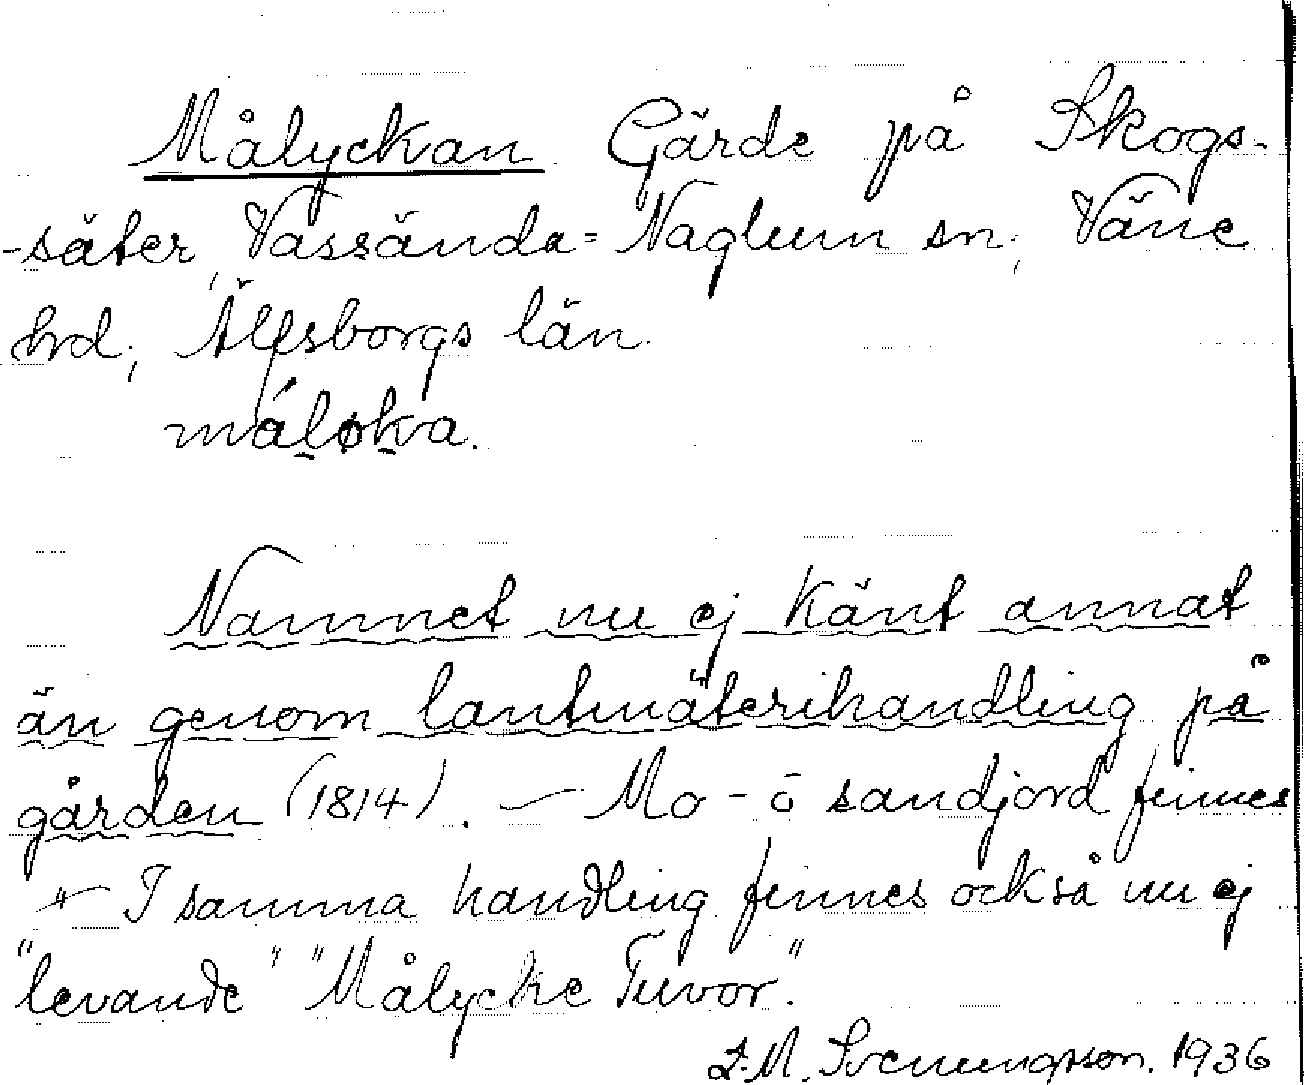 Målyckan Gärde på Skogs-
-säter, Vassända=Naglum sn; Väne
hrd; Älfsborgs län.
máløkva.
Namnet nu ej känt annat
än genom lantmäterihandling på
gården (1814). — Mo- ō sandjord finnes
— I samma handling finnes också nu ej
"levande" "Målycke Tuvor."
J.M. Svenungsson. 1936